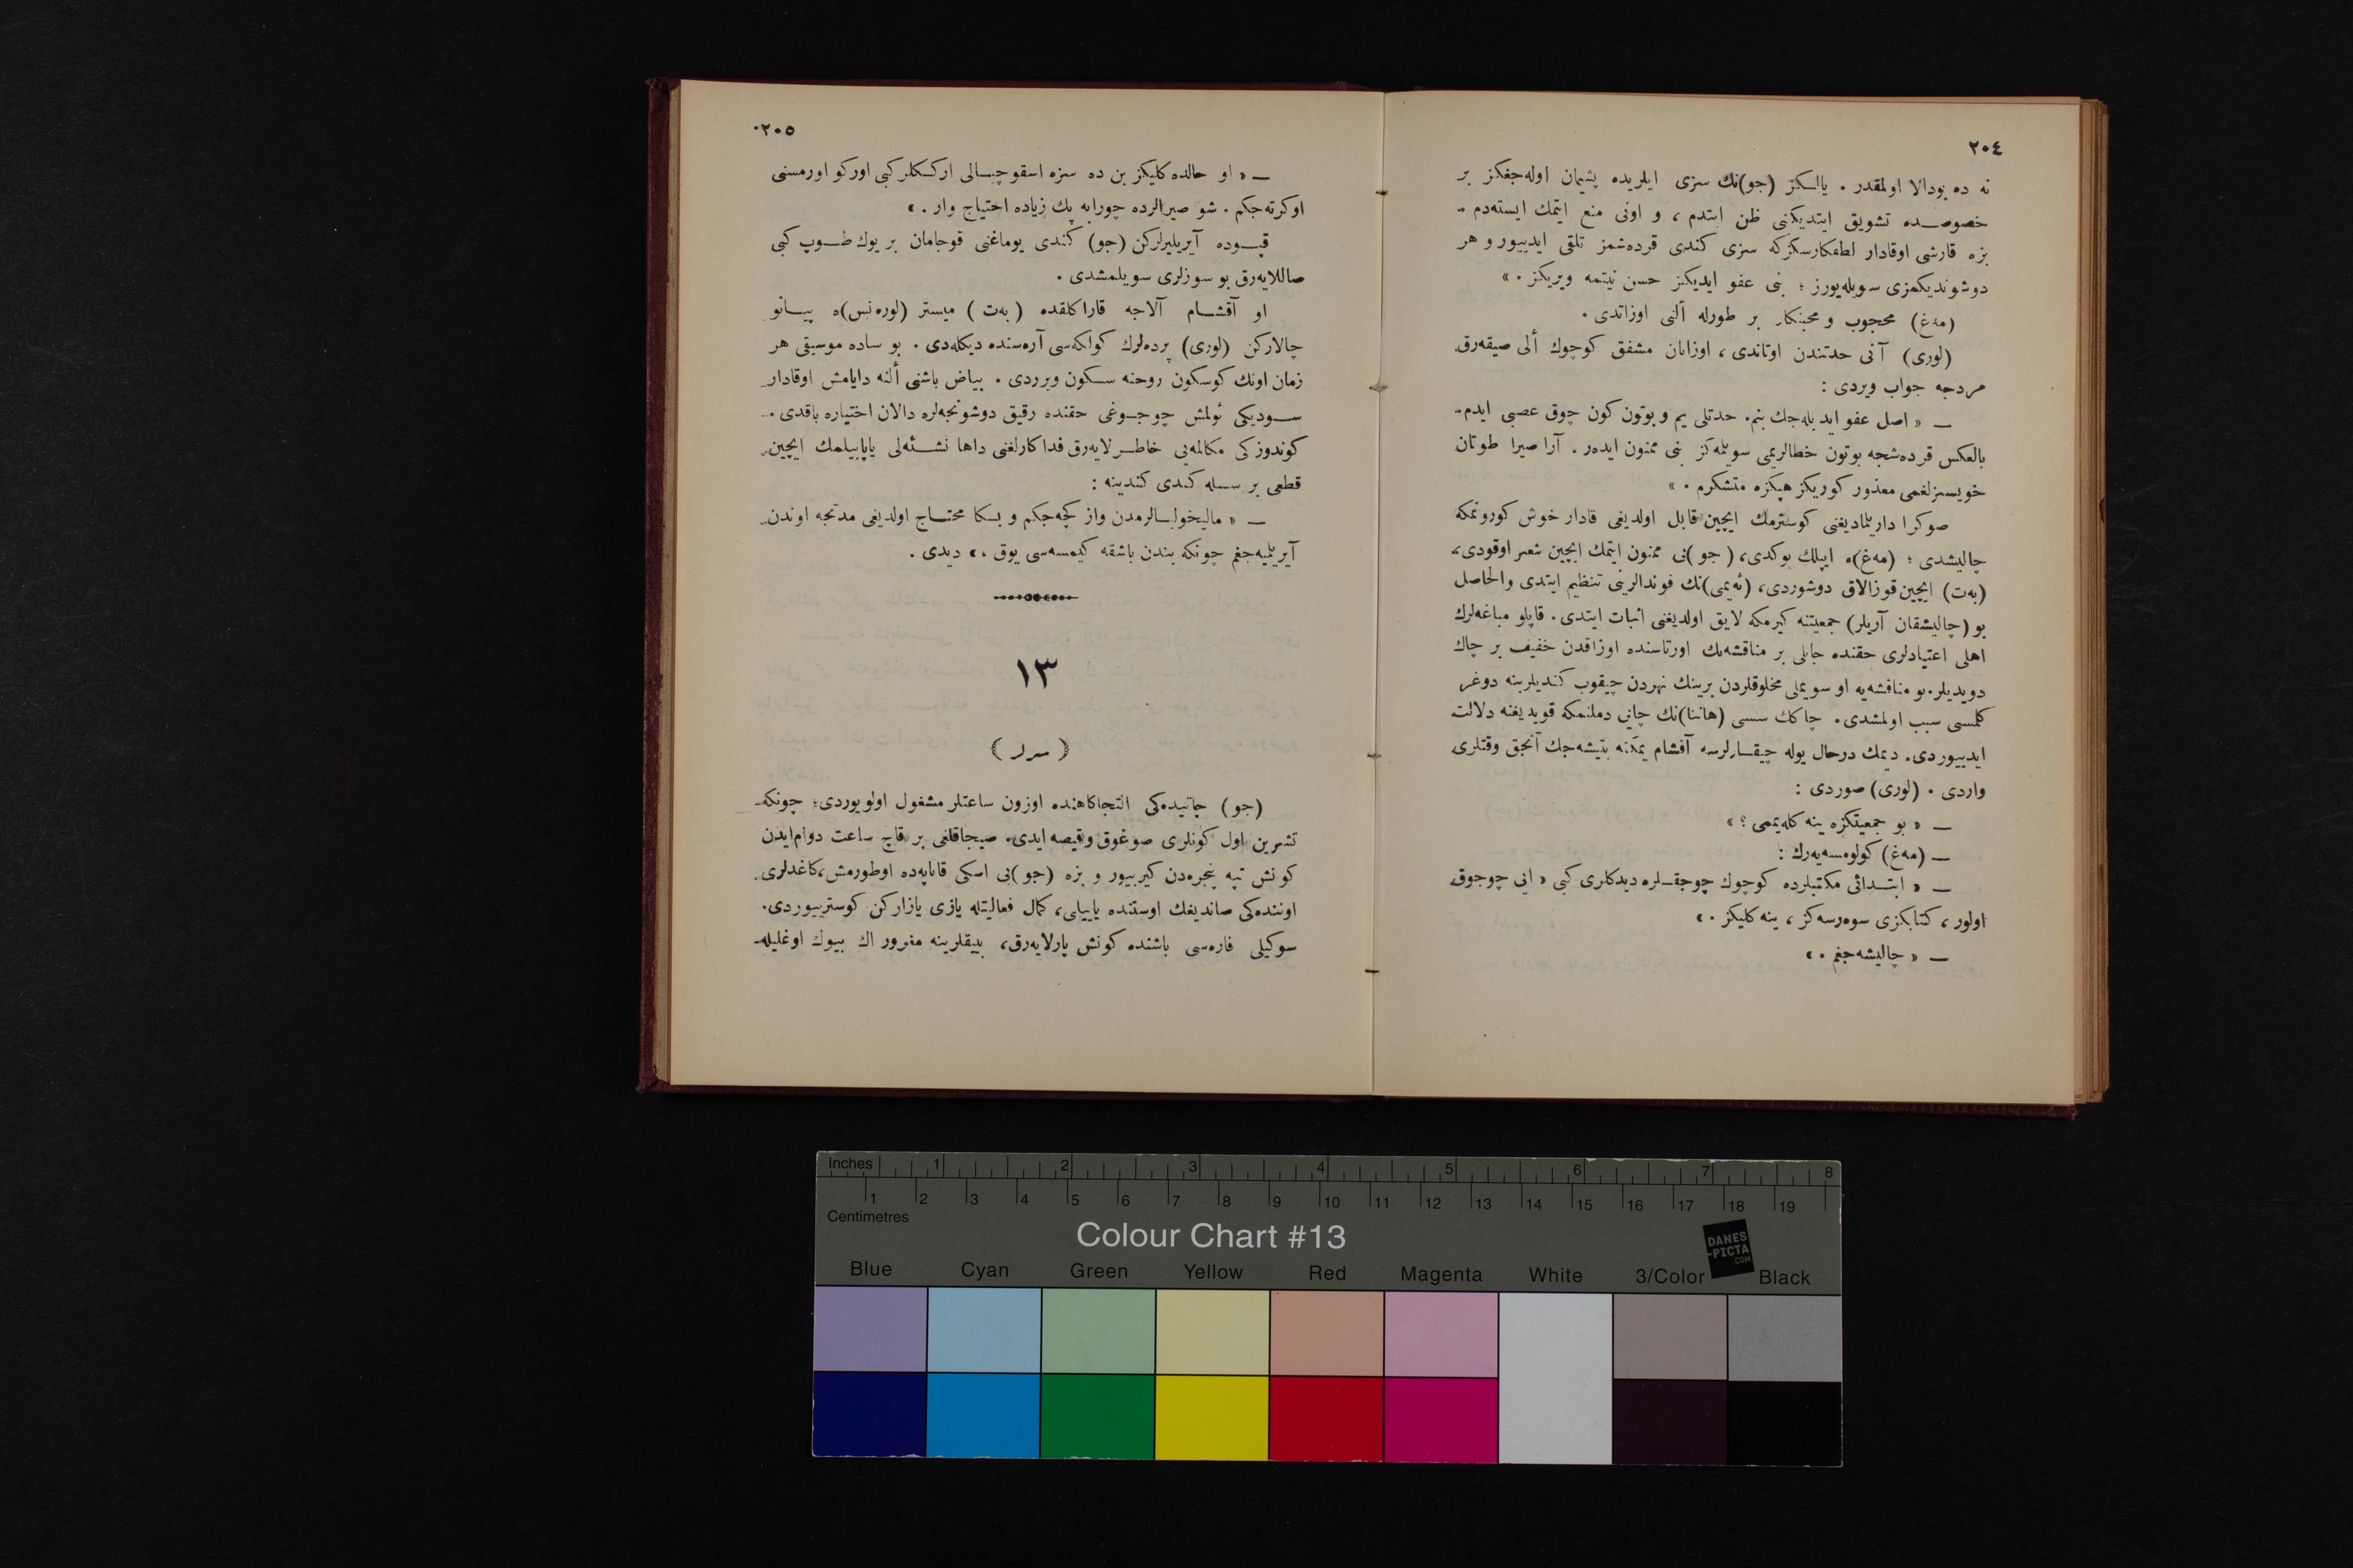 ٢٠٤
نه ده بودالا اولمقدر . يالـكز (جو)نك سزى ايلريده پشيمان اوله‌جغكز بر
خصوصـده تشويق ايتديكنى ظن ايتدم ، و اونى منع ايتمك ايسته‌دم .
بزه قارشى اوقادار لطفكارسكزكه سزى كندى قرده‌شمز تلقى ايدييور و هر
دوشونديكمزى سويله‌يورز ؛ بنى عفو ايديكز حسن نيتمه ويريكز . »
(مه‌غ) محجوب و محبتكار بر طورله ألنى اوزاتدى .
(لورى) آنى حدتندن اوتاندى ، اوزانان مشفق كوچوك ألى صيقه‌رق
مردجه جواب ويردى :
— « اصل عفو ايديله‌جك بنم. حدتلى يم و بوتون كون چوق عصبى ايدم.
بالعكس قرده‌شجه بوتون خطالريمى سويلمه‌كز بنى ممنون ايده‌ر . آرا صيرا طوتان
خويسزلغمى معذور كوريكز هپكزه متشكرم . »
صوكرا داريلماديغنى كوسترمك ايچين قابل اولديغى قادار خوش كورونمكه
چاليشدى ؛ (مه‌غ)ه ايپلك بوكدى، (جو)نى ممنون ايتمك ايچين شعر اوقودى،
(به‌ت) ايچين قوزالاق دوشوردى، (ئه‌يمى)نك فوندالرينى تنظيم ايتدى والحاصل
بو (چاليشقان آريلر) جمعيتنه كيرمكه لايق اولديغنى اثبات ايتدى . قاپلو مباغه‌لرك
اهلى اعتيادلرى حقنده جانلى بر مناقشه‌نك اورتاسنده اوزاقدن خفيف بر چاك
دويديلر. بو مناقشه‌يه او سويملى مخلوقلردن برينك نهردن چيقوب كنديلرينه دوغر
كلمسى سبب اولمشدى . چاكك سسى (هاننا)نك چاىى دملنمكه قويديغنه دلالت
ايدييوردى. ديمك درحال يوله چيقـارلرسه آقشام يمكنه يتيشه‌جك آنجق وقتلرى
واردى . (لورى) صوردى :
— « بو جمعيتكزه ينه كله‌يممى ؟ »
— (مه‌غ) كولومسه‌يه‌رك :
— « ابتـدائى مكتبلرده كوچوك چوجقـلره ديدكلرى كبى « ايى چوجوق
اولور ، كتابكزى سوه‌رسه‌كز ، ينه كليكز . »
— « چاليشه‌جغم . »
٢٠٥
— « او حالده كليكز بن ده سزه اسقوچيـالى اركـكلر كبى اوركو اورمسنى
اوكرته‌جكم . شو صيرالرده چورابه پك زياده احتياج وار . »
قپـوده آيريليرلركن (جو) كندى يوماغنى قوجامان بر يوك طـوپ كبى
صاللايه‌رق بو سوزلرى سويلمشدى .
او آقشـام آلاجه قاراكلقده (به‌ت) ميستر (لوره‌نس)ه پيـانو
چالاركن (لورى) پرده‌لرك كولكه‌سى آره‌سنده ديكله‌دى . بو ساده موسيقى هر
زمان اونك كوسكون روحنه سـكون ويرردى . بياض باشنى ألنه دايامش اوقادار
سـوديكى ئولمش چوجـوغى حقنده رقيق دوشونجه‌لره دالان اختياره باقدى .
كوندوزكى مكالمه‌يى خاطـرلايه‌رق فداكارلغنى داها نشـئه‌لى ياپابيلمك ايچين
قطعى بر سسله كندى كندينه :
— « ماليخوليـالرمدن واز كچه‌جكم و بـكا محتـاج اولديغى مدتجه اوندن
آيريلميه‌جغم چونكه بندن باشقه كيمسه‌سى يوق ، » ديدى .
١٣
(سرلر)
(جو) چاتيده‌كى التجاكاهنده اوزون ساعتلر مشغول اولويوردى؛ چونكه
تشرين اول كونلرى صوغوق وقيصه ايدى. صيجاقلغى بر قاچ ساعت دوام ايدن
كونش تپه پنجره‌دن كيرييور و بزه (جو)يى اسكى قاناپه‌ده اوطورمش، كاغدلرى
اوننده‌كى صانديغك اوستنده ياييلى، كمال فعاليتله يازى يازاركن كوسترييوردى.
سوكيلى فاره‌سى باشنده كونش پارلايه‌رق، بييقلرينه مغرور اك بيوك اوغليله
Inches 1 2 3 4 5 6 7 8
1 2 3 4 5 6 7 8 9 10 11 12 13 14 15 16 17 18 19
Centimetres
Colour Chart #13
DANES
-PICTA
.COM
Blue Cyan Green Yellow Red Magenta White 3/Color Black